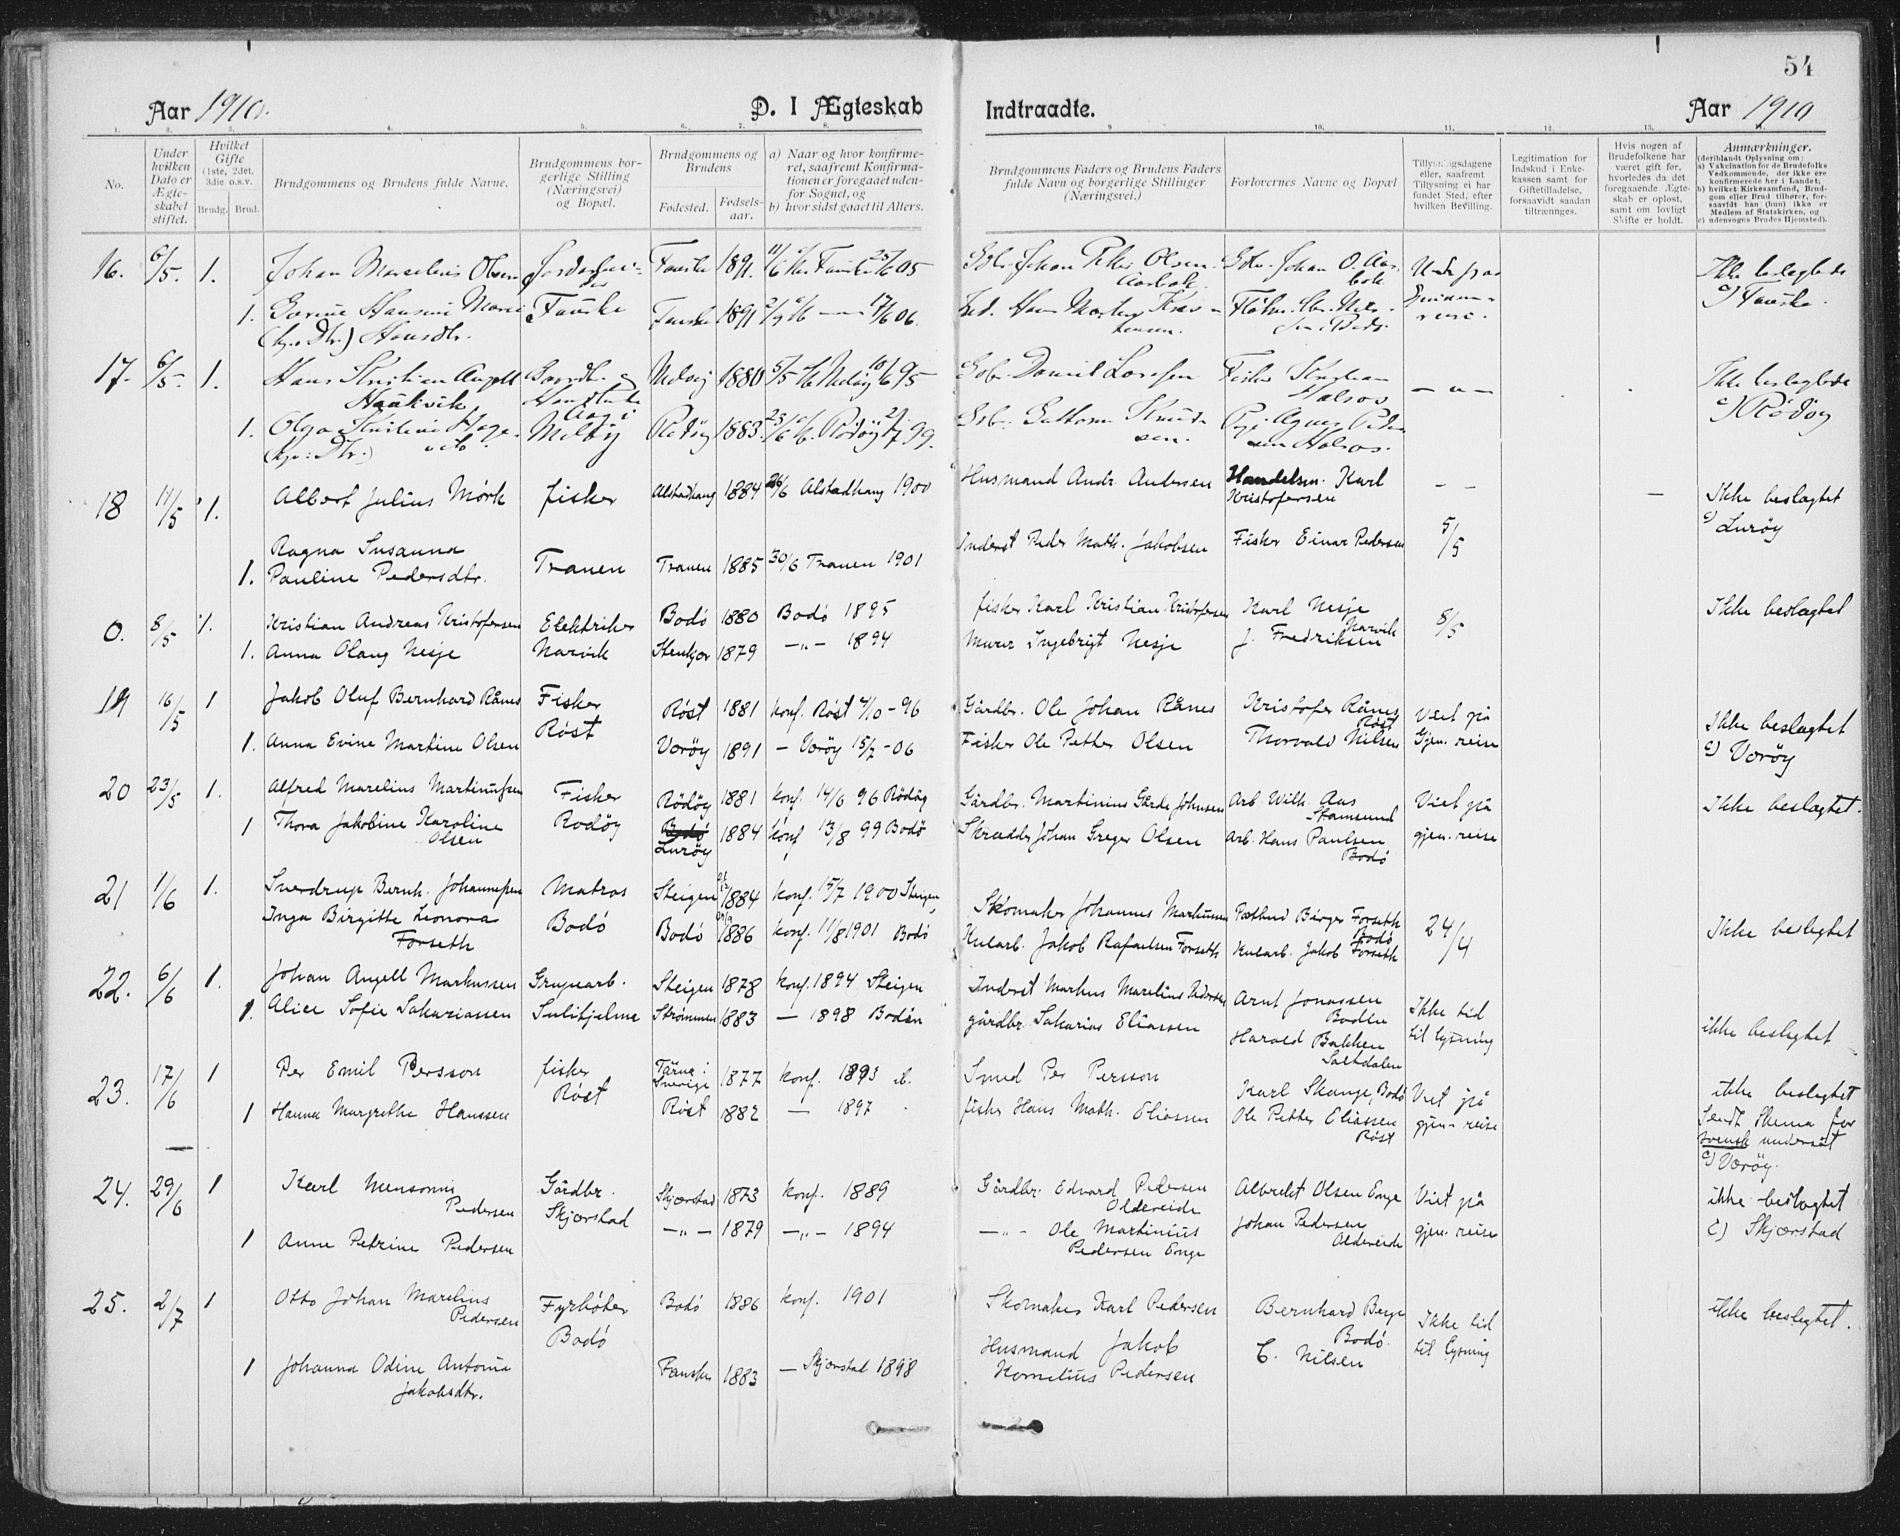 54
Aar 1910.
D. I Ægteskab
Indtraadte.
Aar 1910
1. 2. 3. 4. 5. 6. 7. 8. 9. 10. 11. 12. 13.
No.
Under hvilken Dato er Ægteskabet stiftet.
Hvilket Gifte (1ste, 2det, 3die o.s.v.
Brudg. Brud.
Brudgommens og Brudens fulde Navne.
Brudgommens borgerlige Stilling (Næringsvei) og Bopæl.
Brudgommens og Brudens
Fødested. Fødselsaar.
a) Naar og hvor konfirmeret, saafremt Konfirmationen er foregaaet udenfor Sognet, og
b) hvor sidst gaaet til Alters.
Brudgommens Faders og Brudens Faders fulde Navn og borgerlige Stillinger (Næringsvei.)
Forlovernes Navne og Bopæl
Tillysningsdagene eller, saafremt Tillysning ei har fundet Sted, efter hvilken Bevilling.
Legitimation for Indskud i Enkekassen samt for Giftetilladelse, forsaavidt saadan tiltrænges.
Hvis nogen af Brudefolkene har været gift før, hvorledes da det foregaaende Ægteskab er opløst, samt om lovligt Skifte er holdt.
Anmærkninger.
(deriblandt Oplysning om:
a) Vakcination for de Brudefolks Vedkommende, der ikke ere konfirmerede her i Landet;
b) hvilket Kirkesamfund, Brudgom eller Brud tilhører, forsaavidt han (hun) ikke er Medlem af Statskirken, og
c) udensogns Brudes Hjemsted).
16. 6/5. 1. Johan Marselius Olsen Fauske 1891. 11/6 Fauske 25/6 05 Johan Peter Olsen Johan O. Ikke beslægtede
1. Hansine Marie Fauske Fauske 1891 17/6 06. Hans Morten c) Fauske.
Hansdtr.
17. 6/5. 1. Hans Kristian Angell 1880 5/5 10/6 95 Daniel Fisker Ikke beslægtede
Haukvik
1. Olga Kristine Melöy Rödöy 1883. Rödöy 99. c) Rödöy
18 11/5 1. Albert Julius Mörk fisker Alstadhaug 1884 26/6 Alstadhaug 1900 Husmand Andr. Andersen Handelsm. Karl Kristofersen – – Ikke beslægtet
c) Luröy
Ragna Susanna
1. Pauline Pedersdtr. Tranen Tranen 1885 30/6 Tranen 1901 Inderst Peder Math. Jakobsen Fisker Einar Pedersen 5/5
0. 8/5 1. Kristian Andreas Kristofersen Elektriker Bodö 1880 Bodö 1895 fisker Karl Kristian Kristofersen Karl Nesje Narvik 8/5 Ikke beslægtet
1. Anna Olaug Nesje Narvik Stenkjær 1879 –"– 1894 Murer Ingebrigt Nesje J. Fredriksen
19 16/5 1 Jakob Oluf Bernhard Rånes Fisker Röst Röst 1881 konf. Röst 4/10 - 96 Gårdbr. Ole Johan Rånes Kristofer Rånes Röst Viet på gjen. reise Ikke beslægtet
c) Væröy
1. Anna Evine Martine Olsen Væröy 1891 – Væröy 15/7 - 06 Fisker Ole Petter Olsen Thorvald Nilsen
20 23/5 1. Alfred Marelius Martinussen Fisker Rödöy Rödöy 1881 konf. 14/6 96 Rödöy Gårdbr. Martinius Gårde Johnsen Arb. Wilh. Aas Stamsund Viet på gjen. reise Ikke beslægtet.
1 Thora Jakobine Karoline Olsen Bodö Luröy 1884 konf 13/8 99 Bodö Skrædder Johan Greger Olsen Arb. Hans Paulsen Bodö
21 1/6 1. Sverdrup Bernh. Johannessen Matros Bodö Steigen 1884 konf. 15/7 1900 Steigen Skomaker Johannes Birger Forseth Bodö 24/4 Ikke beslegtet
Inga Birgitte Leonora Forseth Bodö 1886 konf. 11/8 1901 Bodö Kularb. Jakob Rafaelsen Forseth Kularb. Jakob Forseth
22. 6/6 1. Johan Angell Markussen Grupearb. Sulitjelma Steigen 1878 konf. 1894 Steigen Inderst Markus Marelius Pedersen Arnt Jonassen Bodin Ikke tid til lysning ikke beslegtet
1. Alice Sofie Sakariassen Strömmen 1883 – 1898 Bodin gårdbr. Sakarias Eliassen Harald Bakken Saltdalen
23. 17/6 1 Per Emil Persson fisker Röst Tärna i Sverige 1877 konf. 1893 ib. Smed Per Persson Karl Skange, Bodö Viet på gjen. reise ikke beslegtet
1 Hanna Margrethe Hanssen Röst 1882 – 1897 fisker Hans Math. Eliassen Ole Petter Eliassen Röst Sendt Skema for svensk undersåt
c) Væröy.
24. 29/6 1 Karl Pedersen Gårdbr. Skjærstad Skjærstad 1873 konf. 1889 Gårdbr. Edvard Pedersen Oldereide Albrekt Olsen Enge Viet på gjen. reise ikke beslægtet
c) Skjærstad
1 Anne Petrine Pedersen –"– 1879 –"– 1894 –"– Ole Martinius Pedersen Enge Johan Pedersen Oldereide
25. 2/7 1 Otto Johan Marelius Pedersen Fyrböter Bodö Bodö 1886 konf. 1901 Skomaker Karl Pedersen Bernhard Berge Bodö. Ikke tid til lysning ikke beslegtet.
1 Johanna Odine Antonia Jakobsdtr. Fauske 1883 – Skjærstad 1898 Husmand Jakob Kornelius Pedersen C. Nilsen